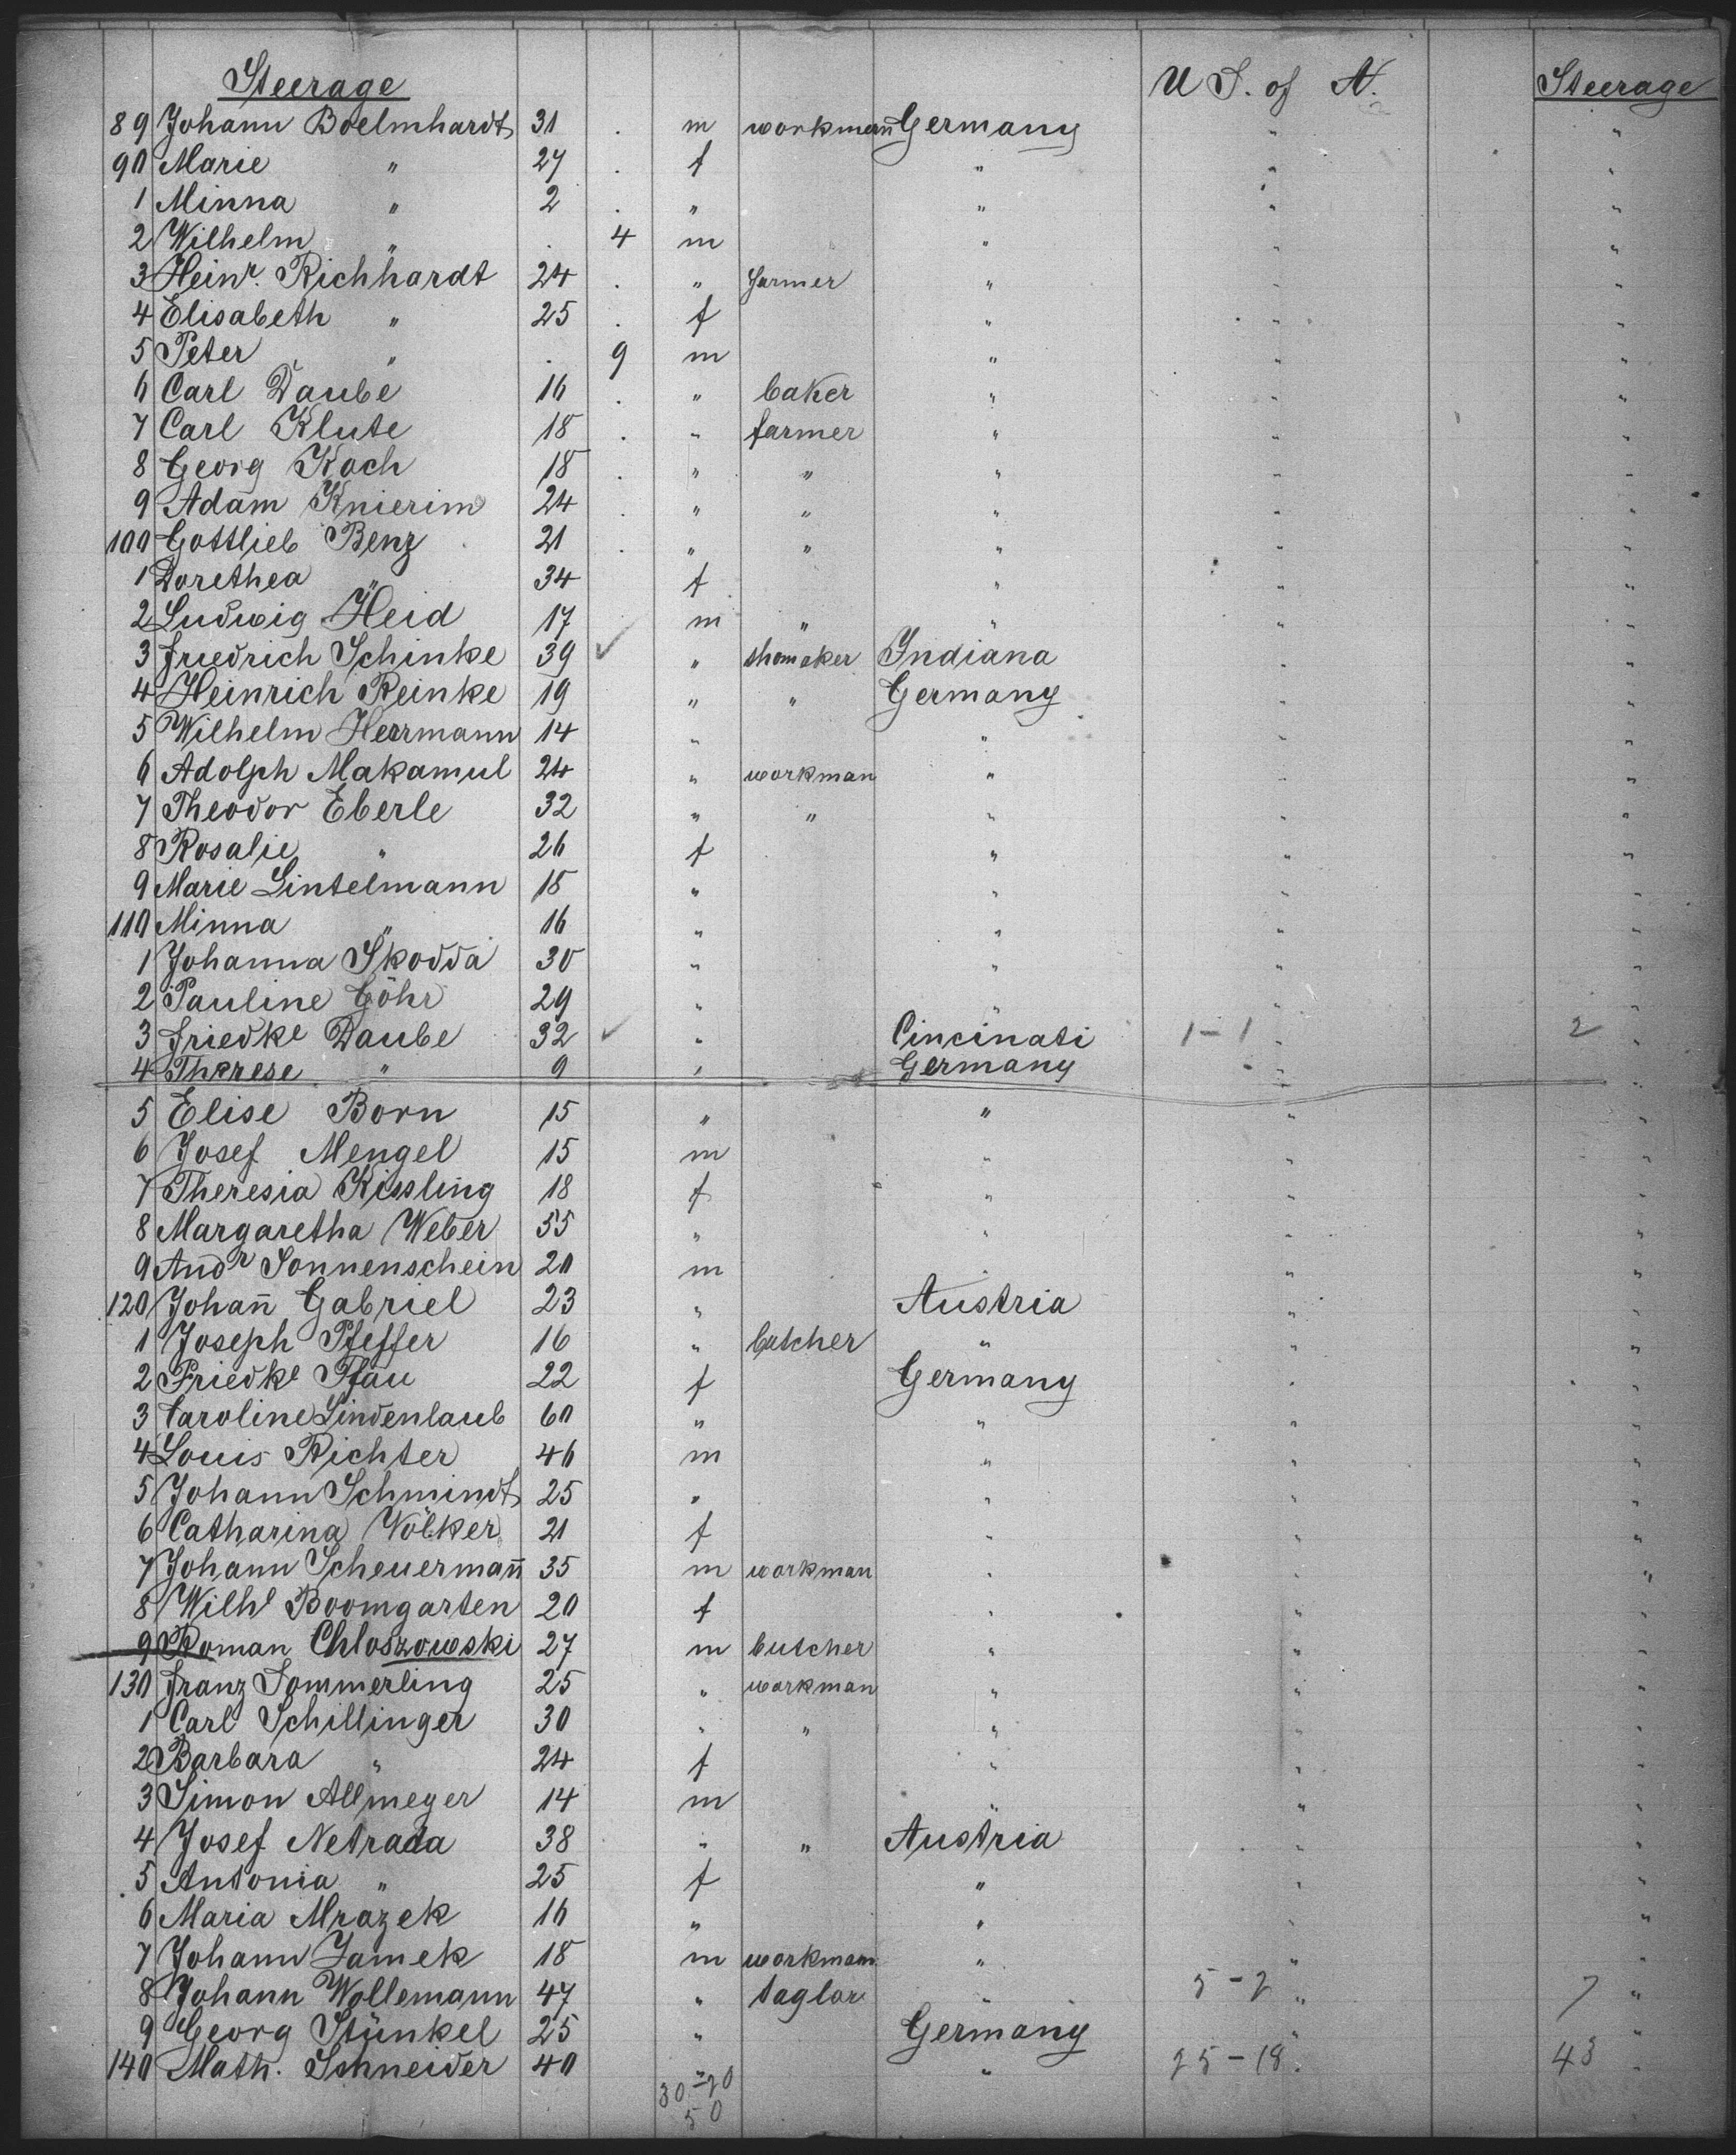 Steerage U S. of A. Steerage
89 Johann Boelmhardt 31 . m workmann Germany " "
90 Marie " 27 . f " " "
1 Minna " 2 . " " " "
2 Wilhelm " . 4 m " " "
3 Heinr. Richhardt 24 . " farmer " " "
4 Elisabeth " 25 . f " " "
5 Peter " . 9 m " " "
6 Carl Daube 16 . " baker " " "
7 Carl Klute 18 . " farmer " " "
8 Georg Koch 18 . " " " " "
9 Adam Knierim 24 . " " " " "
100 Gottlieb Benz 21 . " " " " "
1 Dorethea " 34 f " " "
2 Ludwig Heid 17 m " " " "
3 Friedrich Schinke 39 ✓ " shomaker Indiana " "
4 Heinrich Reinke 19 " " Germany " "
5 Wilhelm Herrmann 14 " " " "
6 Adolph Makamul 24 " workman " " "
7 Theodor Eberle 32 " " " " "
8 Rosalie " 26 f " " "
9 Marie Lintelmann 18 " " " "
110 Minna " 16 " " " "
1 Johanna Skodda 30 " " " "
2 Pauline Göhr 29 " " " "
3 Friedke Daube 32 ✓ " Cincinati 1-1 " 2 "
4 Therese " 9 " Germany " "
5 Elise Born 15 " " " "
6 Josef Mengel 15 m " " "
7 Theresia Kissling 18 f " " "
8 Margaretha Weber 55 " " " "
9 Andr Sonnenschein 20 m " " "
120 Johan̄ Gabriel 23 " Austria " "
1 Joseph Pfeffer 16 " butcher " " "
2 Friedke Pfau 22 f Germany " "
3 Caroline Lindenlaub 60 " " " "
4 Louis Richter 46 m " " "
5 Johann Schmindt 25 " " " "
6 Catharina Völker 21 f " " "
7 Johann Scheuerman̄ 35 m workman " " "
8 Wilhl Boomgarten 20 f " " "
9 Roman Chloszowski 27 m butcher " " "
130 Franz Sommerling 25 " workman " " "
1 Carl Schillinger 30 " " " " "
2 Barbara " 24 f " " "
3 Simon Allmeyer 14 m " " "
4 Josef Netrada 38 " " Austria " "
5 Antonia " 25 f " " "
6 Maria Mrazek 16 " " " "
7 Johann Jamek 18 m workman " " "
8 Johann Wollemann 47 " taglor " 5-2 " 7 "
9 Georg Stünkel 25 " Germany " "
140 Math. Schneider 40 " " 25-18 . 43 "
30-20
50